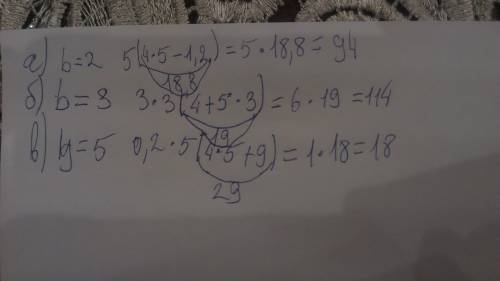 а) b=2 5(4·5-1,2)=5·18,8=94
18,8
б) b=3 3·3(4+5·3)=6·19=114
19
в) y=5 0,2·5(4·5+9)=1·18=18
29